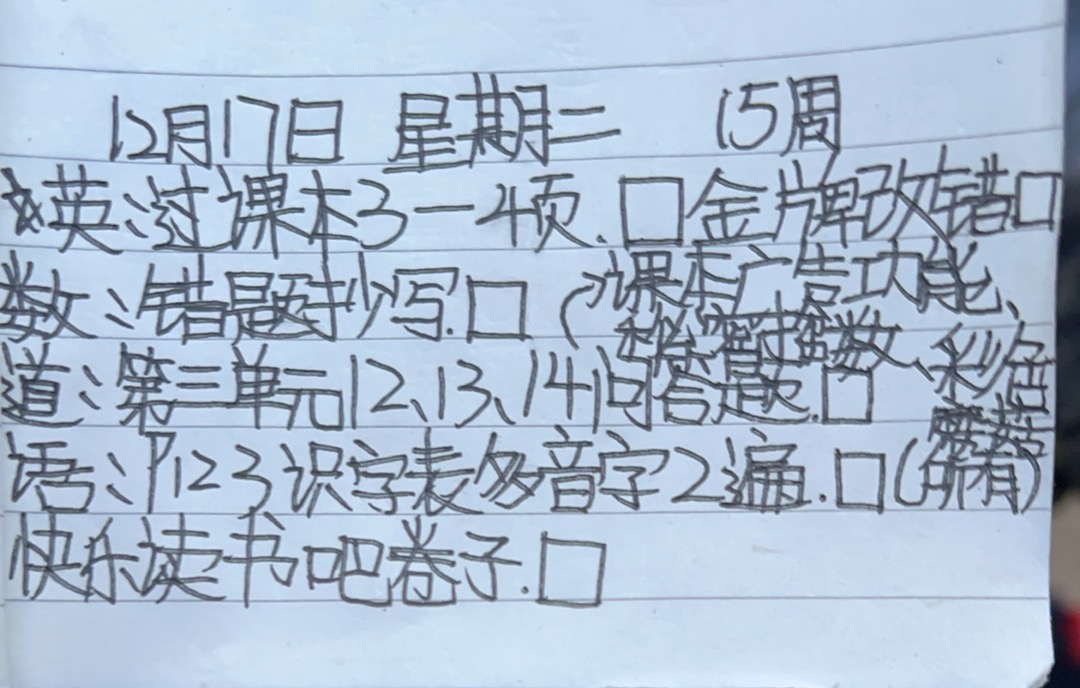 12月17日 星期二 15周
英:过课本3一4页.□金牌改错□
数:错题抄写.□(课本广告功能、
数、彩色
道:第三单元12、13、14问答题.□
语:P123识字表多音字2遍.□(所有)
快乐读书吧卷子.□